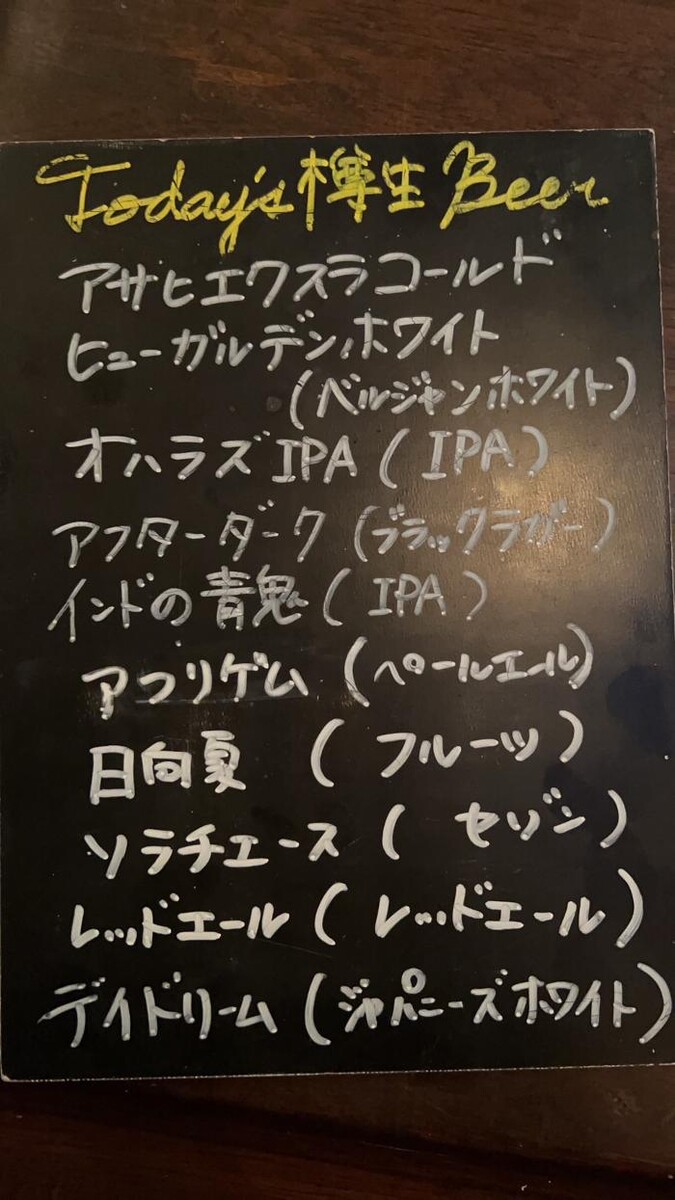 Today's 樽生 Beer
アサヒエクスラコールド
ヒューガルデンホワイト
(ベルジャンホワイト)
オハラズIPA (IPA)
アフターダーク (ブラックラガー)
インドの青鬼 (IPA)
アフリゲム (ペールエール)
日向夏 (フルーツ)
ソラチエース (セゾン)
レッドエール (レッドエール)
デイドリーム (ジャパニーズホワイト)